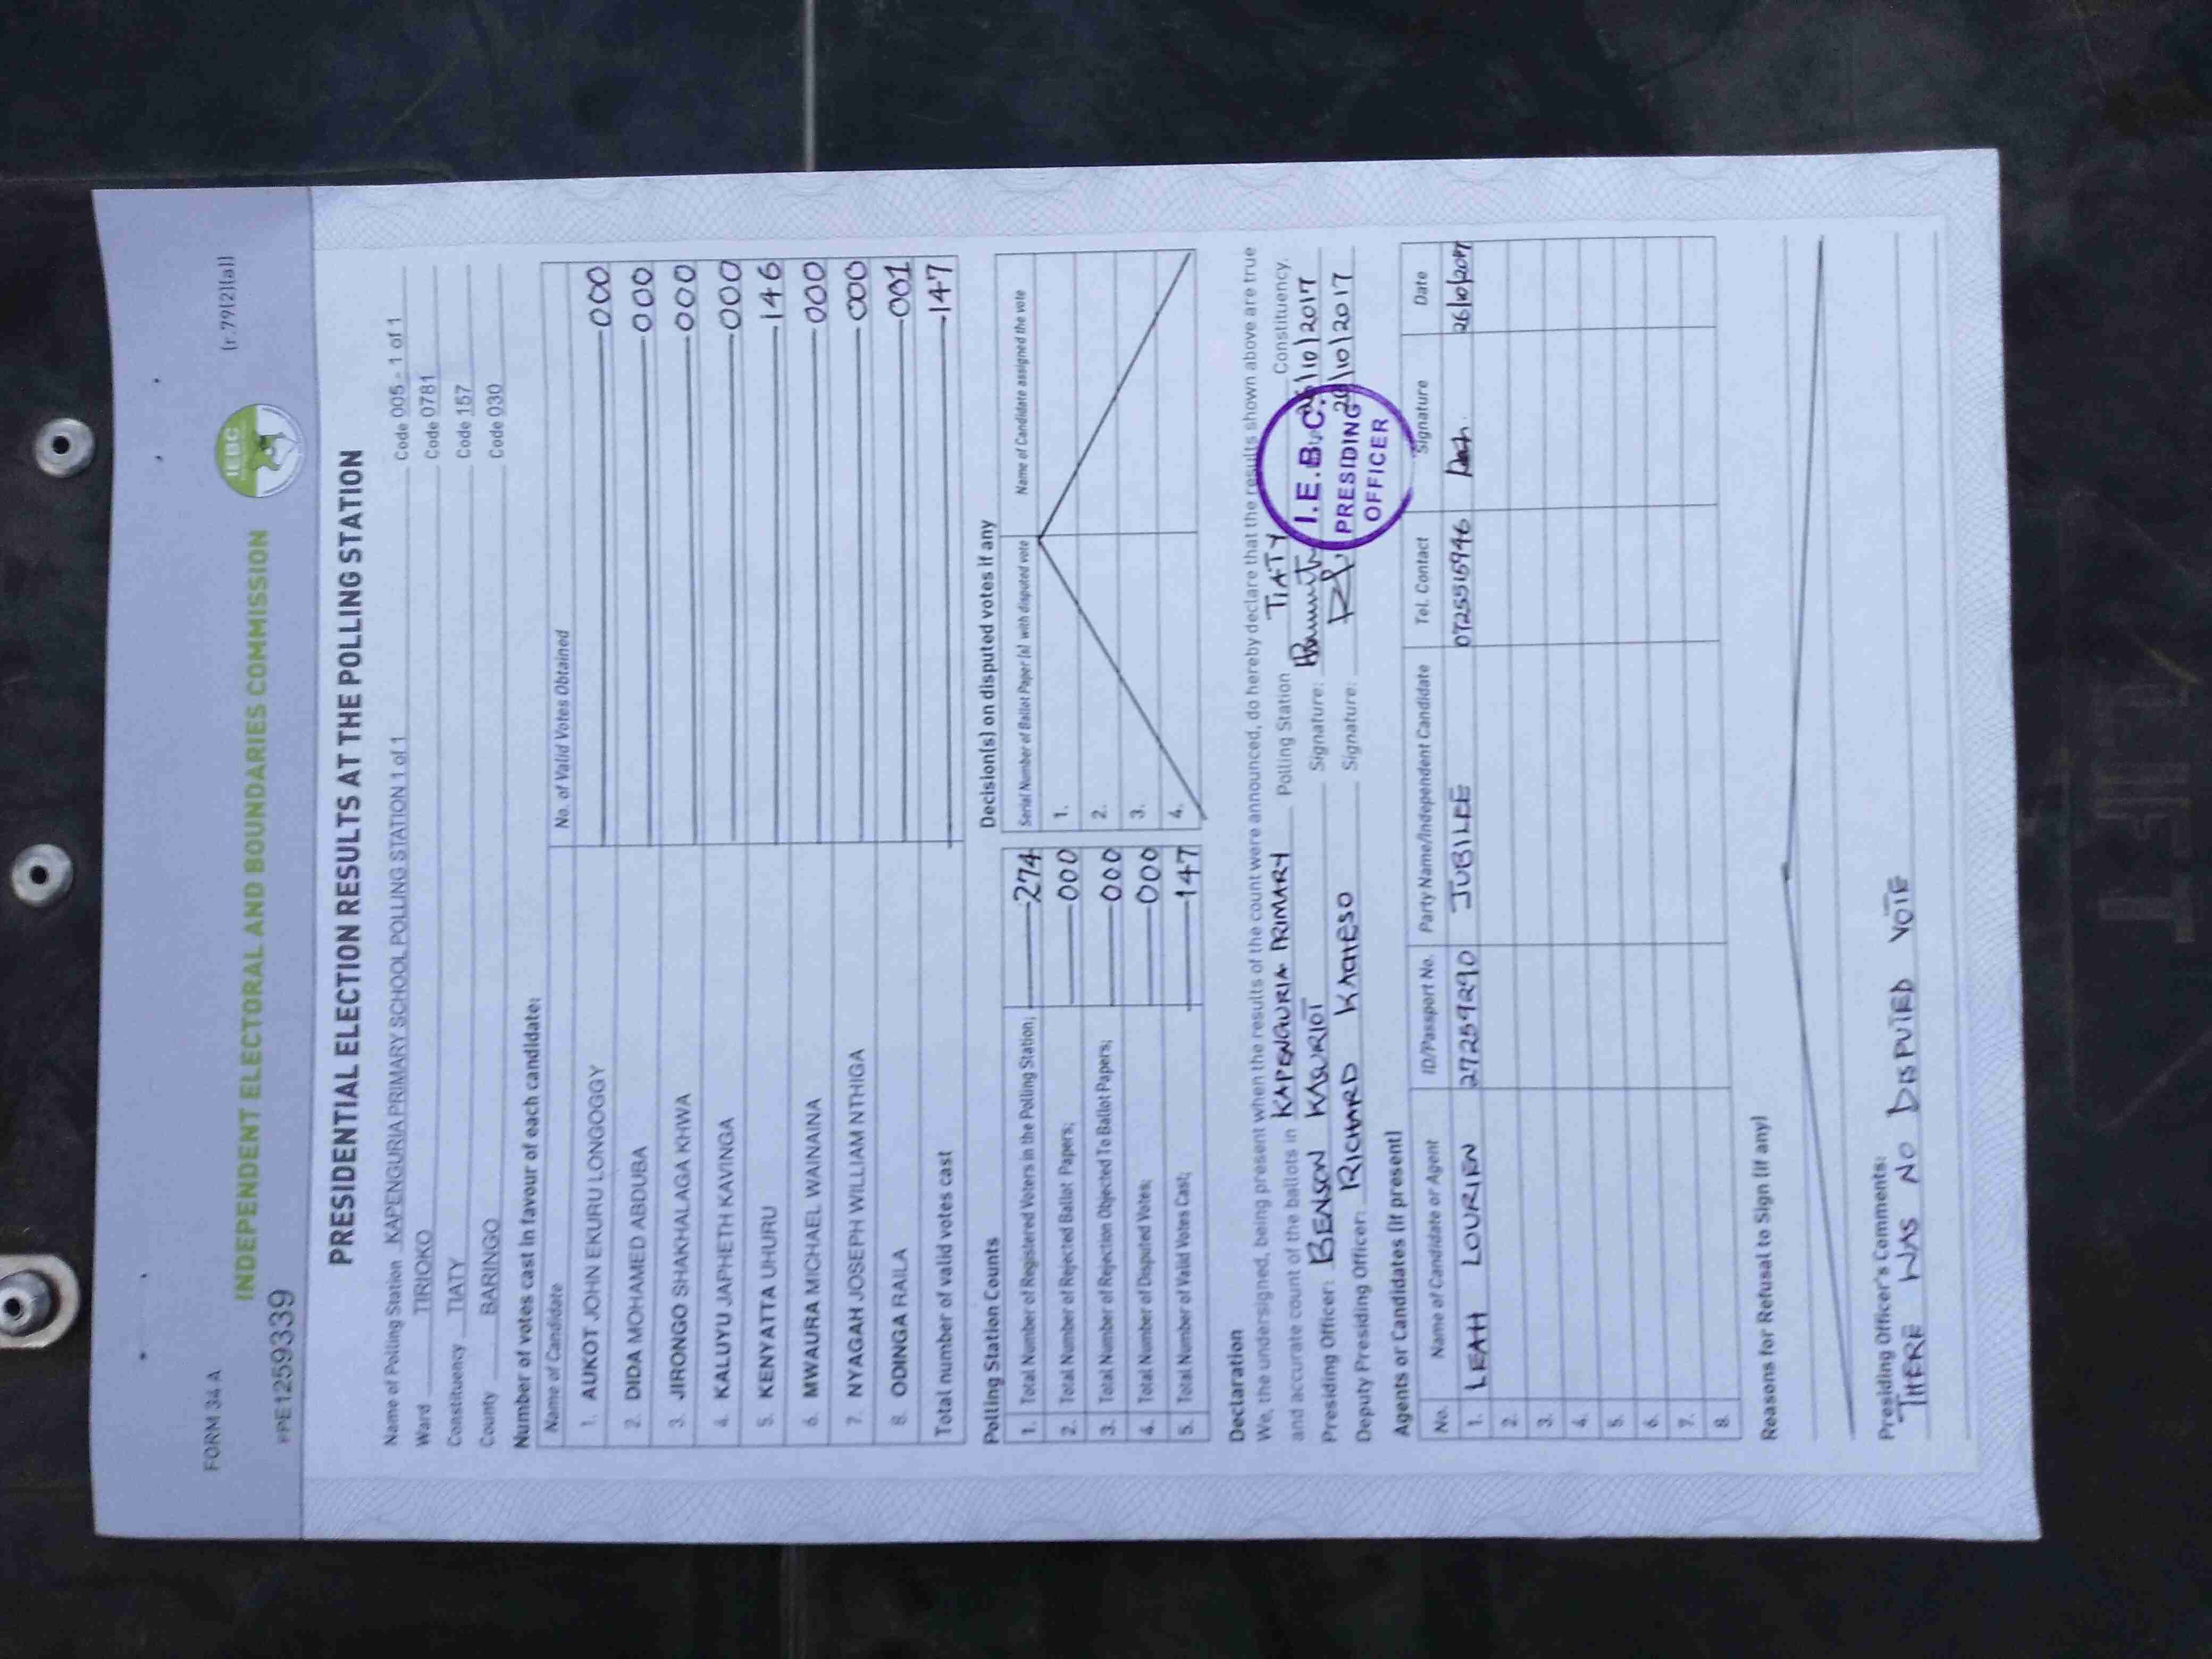 FORM 34 A
(r.79(2)(a))
INDEPENDENT ELECTORAL AND BOUNDARIES COMMISSION
IEBC
PRE1259339
PRESIDENTIAL ELECTION RESULTS AT THE POLLING STATION
Name of Polling Station KAPENGURIA PRIMARY SCHOOL POLLING STATION 1 of 1 Code 005 - 1 of 1
Ward TIRIOKO Code 0781
Constituency TIATY Code 157
County BARINGO Code 030
Number of votes cast in favour of each candidate:
Name of Candidate No. of Valid Votes Obtained
1. AUKOT JOHN EKURU LONGOGGY 000
2. DIDA MOHAMED ABDUBA 000
3. JIRONGO SHAKHALAGA KHWA 000
4. KALUYU JAPHETH KAVINGA 000
5. KENYATTA UHURU 146
6. MWAURA MICHAEL WAINAINA 000
7. NYAGAH JOSEPH WILLIAM NTHIGA 000
8. ODINGA RAILA 001
Total number of valid votes cast 147
Polling Station Counts
1. Total Number of Registered Voters in the Polling Station; 274
2. Total Number of Rejected Ballot Papers; 000
3. Total Number of Rejection Objected To Ballot Papers; 000
4. Total Number of Disputed Votes; 000
5. Total Number of Valid Votes Cast; 147
Decision(s) on disputed votes if any
Serial Number of Ballot Paper (s) with disputed vote Name of Candidate assigned the vote
1.
2.
3.
4.
Declaration
We, the undersigned, being present when the results of the count were announced, do hereby declare that the results shown above are true
and accurate count of the ballots in KAPENGURIA PRIMARY Polling Station TIATY Constituency.
Presiding Officer: BENSON Signature: 26/10/2017
Deputy Presiding Officer: RICHARD Signature: 26/10/2017
I.E.B.C.
PRESIDING
OFFICER
Agents or Candidates (if present)
No. Name of Candidate or Agent ID/Passport No. Party Name/Independent Candidate Tel. Contact Signature Date
1. LEAH LOURIEN 27259290 JUBILEE 0725515946 26/10/2017
2.
3.
4.
5.
6.
7.
8.
Reasons for Refusal to Sign (if any)
Presiding Officer's Comments:
THERE WAS NO DISPUTED VOTE